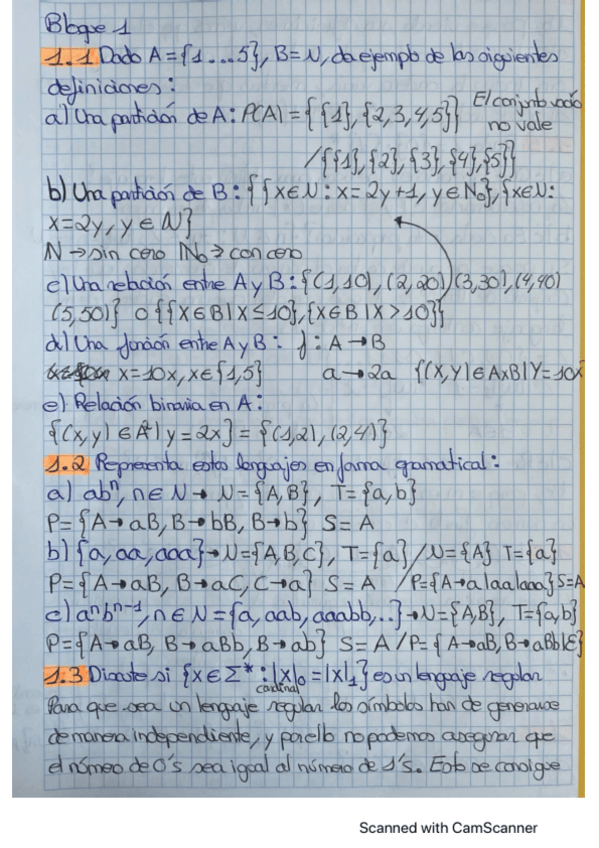 Bloque 1
1.1 Dado A = {1...5}, B = N, da ejemplo de las siguientes
definiciones:
a) Una partición de A: P(A) = {{1}, {2,3,4,5}} El conjunto vacío
no vale
/{{1}, {2}, {3}, {4}, {5}}
b) Una partición de B: {{x∈N: x = 2y+1, y∈N₀}, {x∈N:
x=2y, y∈N}
N → sin cero N₀ → con cero
c) Una relación entre A y B: {(1,10), (2,20) (3,30), (4,40)
(5,50)} o {{x∈B | x≤10}, {x∈B | x>10}}
d) Una función entre A y B: f: A → B
x=10x, x∈{1,5} a → 2a {(x,y)∈AxB | Y=10x
e) Relación binaria en A:
{(x,y) ∈ A² | y = 2x} = {(1,2), (2,4)}
1.2 Representa estos lenguajes en forma gramatical:
a) abⁿ, n∈N → N={A,B}, T={a,b}
P={A→aB, B→bB, B→b} S=A
b) {a, aa, aaa} → N={A,B,C}, T={a} / N={A} T={a}
P={A→aB, B→aC, C→a} S=A / P={A→a|aa|aaa} S=A
c) aⁿbⁿ⁻¹, n∈N = {a, aab, aaabb,..} → N={A,B}, T={a,b}
P={A→aB, B→aBb, B→ab} S=A / P={A→aB, B→aBb|ε}
1.3 Discute si {x∈Σ* : |x|₀ = |x|₁} es un lenguaje regular
cardinal
Para que sea un lenguaje regular los símbolos han de generarse
de manera independiente, y por ello no podemos asegurar que
el número de 0's sea igual al número de 1's. Esto se consigue
Scanned with CamScanner